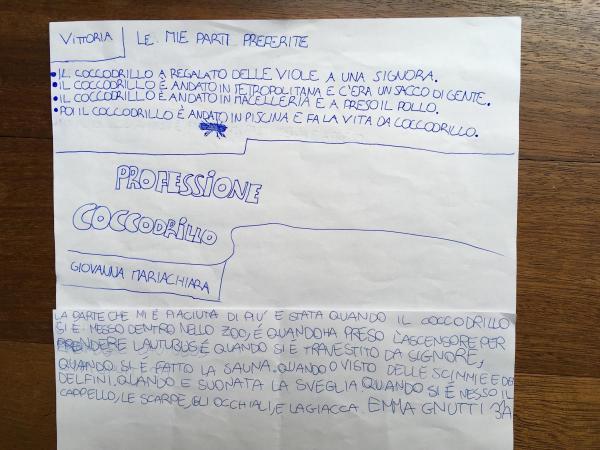 VITTORIA
LE MIE PARTI PREFERITE
• IL COCCODRILLO A REGALATO DELLE VIOLE A UNA SIGNORA.
• IL COCCODRILLO È ANDATO IN METROPOLITANA E C'ERA UN SACCO DI GENTE.
• IL COCCODRILLO È ANDATO IN MACELLERIA E A PRESO IL POLLO.
• POI IL COCCODRILLO È ANDATO IN PISCINA E FA LA VITA DA COCCODRILLO.
PROFESSIONE
COCCODRILLO
GIOVANNA MARIACHIARA
LA PARTE CHE MI È PIACIUTA DI PIU' E STATA QUANDO IL COCCODRILLO
SI E MESSO DENTRO NELLO ZOO, É QUANDO HA PRESO L'ASCENSORE PER
PRENDERE L'AUTUBUS É QUANDO SI E TRAVESTITO DA SIGNORE,
QUANDO SI E FATTO LA SAUNA. QUANDO O VISTO DELLE SCIMMIE E DEI
DELFINI. QUANDO E SUONATA LA SVEGLIA QUANDO SI É MESSO IL
CAPPELLO, LE SCARPE, GLI OCCHIALI, E LA GIACCA. EMMA GNUTTI 3A